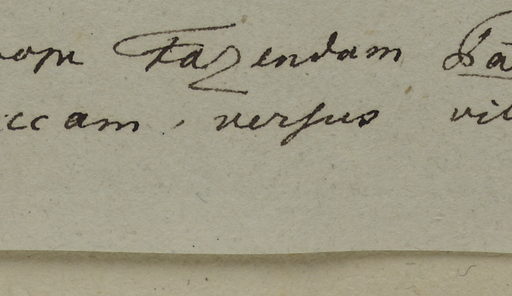 prope Fazendam Ba
ccam. versus vil